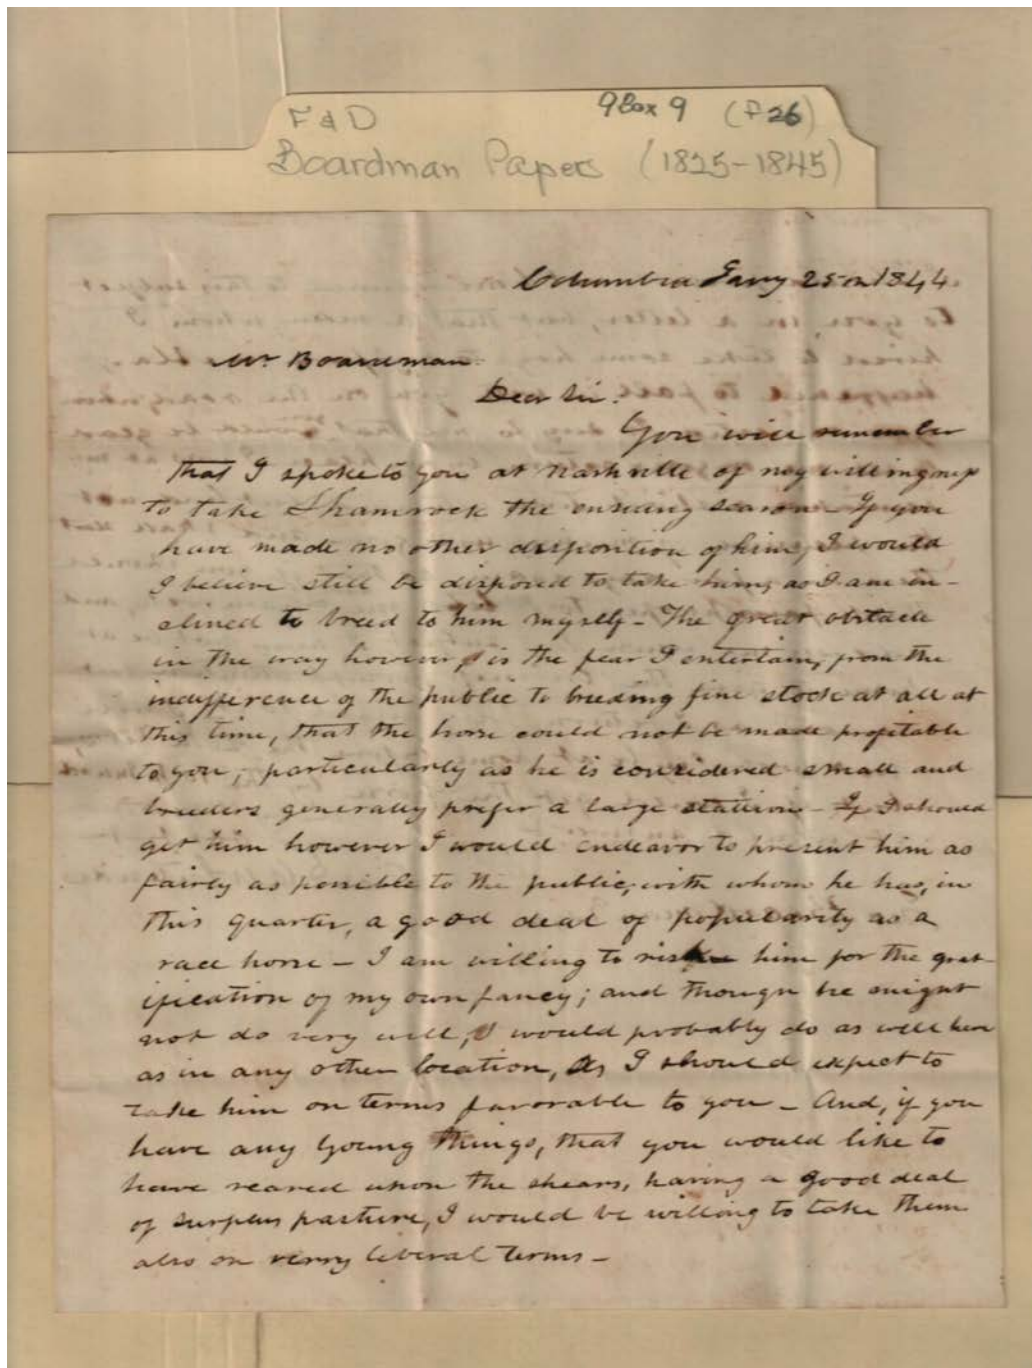 F & D 9Box 9 (f 26)
Boardman Papers (1825-1845)
Columbia Jany 25th 1844.
Mr Boardman
Dear Sir.
You will remember
that I spoke to you at Nashville of my willingness
to take Shamrock the ensuing season - If you
have made no other disposition of him, I would
I believe still be disposed to take him, as I am in-
clined to breed to him myself - The great obstacle
in the way however, is the fear I entertain, from the
indifference of the public to breeding fine stock at all at
this time, that the horse could not be made profitable
to you, particularly as he is considered small and
breeders generally prefer a large stallion - If I should
get him however I would endeavor to present him as
fairly as possible to the public, with whom he has, in
this quarter, a good deal of popularity as a
race horse - I am willing to risk him for the grat-
ification of my own fancy; and though he might
not do very well, would probably do as well here
as in any other location, As I should expect to
take him on terms favorable to you - And, if you
have any young things, that you would like to
have reared upon the shears, having a good deal
of surplus pasture, I would be willing to take them
also on verry liberal terms -